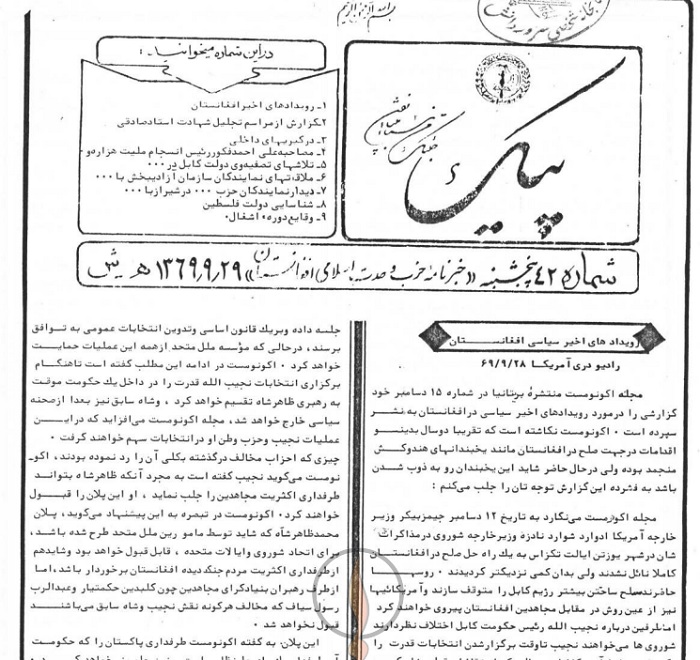 بسم الله الرحمن الرحیم
در این شماره میخوانید :
۱ـ رویدادهای اخیر افغانستان
۲ـ گزارش از مراسم تجلیل شهادت استاد صادقی
۳ـ درگیریهای داخلی
۴ـ مصاحبه علی احمد فکور رئیس انسجام ملیت هزاره و
۵ـ تلاشهای تصفیه‌وی دولت کابل در ۰۰۰
۶ـ ملاقاتهای نمایندگان سازمان آزادیبخش با ۰۰۰
۷ـ دیدار نمایندگان حزب ۰۰۰ در شیراز با ۰۰۰
۸ـ شناسایی دولت فلسطین
۹ـ وقایع دوره اشغال
پیک
شماره ۴۲ پنجشنبه «خبرنامه حزب وحدت اسلامی افغانستان» ۱۳۶۹٫۹٫۲۹ هـ ش
رویدادهای اخیر سیاسی افغانستان
رادیو دری آمریکا ۶۹/۹/۲۸
مجله اکونومست منتشرهٔ بریتانیا در شماره ۱۵ دسامبر خود
گزارشی را در مورد رویدادهای اخیر سیاسی در افغانستان به نشر
سپرده است ۰ اکونومست نگاشته که تقریبا دو سال بدینسو
اقدامات در جهت صلح در افغانستان مانند یخبندانهای هندوکش
منجمد بوده ولی در حال حاضر شاید این یخبندان رو به ذوب شدن
باشد به فشرده این گزارش توجه تان را جلب می‌کنم :
مجله اکونومست می‌نگارد به تاریخ ۱۲ دسامبر جیمزبیکر وزیر
خارجه آمریکا ادوارد شوارد نادزه وزیر خارجه شوروی در مذاکرات
شان در شهر یوزتن ایالت تکزاس به یك راه حل صلح در افغانستان
کاملا نائل نشدند ولی بدان کمی نزدیکتر گردیدند ۰ روسها
حاضرند مسلح ساختن بیشتر رژیم کابل را متوقف سازند و آمریکائیها
نیز از عین روش در مقابل مجاهدین افغانستان پیروی خواهند کرد
اما طرفین درباره نجیب الله رئیس حکومت کابل اختلاف نظر دارند
شوروی ها می‌خواهند نجیب تا وقت برگزار شدن انتخابات قدرت را
جلسه داده و بر یك قانون اساسی و تدوین انتخابات عمومی به توافق
برسند، در حالی که مؤسسه ملل متحد از همه این عملیات حمایت
خواهد کرد ۰ اکونومست در ادامه این مطلب گفته است تا هنگام
برگزاری انتخابات نجیب الله قدرت را در داخل یك حکومت موقت
به رهبری ظاهرشاه تقسیم خواهد کرد ۰ و شاه سابق نیز بعدا از صحنه
سیاسی خارج خواهد شد، مجله اکونومست می‌افزاید که در این
عملیات نجیب و حزب وطن او در انتخابات سهم خواهند گرفت ۰
چیزی که احزاب مخالف در گذشته بکلی آن را رد نموده بودند، اکو
نومست می‌گوید نجیب گفته است به مجرد آنکه ظاهرشاه بتواند
طرفداری اکثریت مجاهدین را جلب نماید ، او این پلان را قبول
خواهند کرد ۰ اکونومست در تبصره به این پیشنهاد می‌گوید، پلان
محمدظاهرشاه که شاید توسط مامورین ملل متحد طرح شده باشد،
برای اتحاد شوروی و ایالات متحده ، قابل قبول خواهد بود و شاید هم
از طرفداری اکثریت مردم جنگ دیده افغانستان برخوردار باشد، اما
از طرف رهبران بنیادگرای مجاهدین چون گلبدین حکمتیار و عبدالرب
رسول سیاف که مخالف هرگونه نقش نجیب و شاه سابق می‌باشند
قبول نخواهد شد ۰
این پلان، به گفته اکونومست طرفداری پاکستان را که حکومت